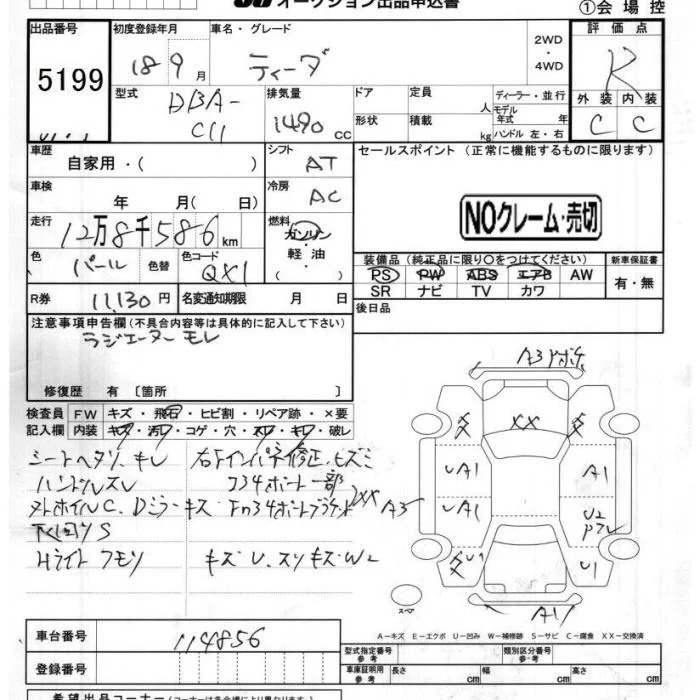 オークション出品申込書
①会場控
出品番号
5199
初度登録年月
18 9月
車名・グレード
ティーダ
2WD
・
4WD
評価点
R
外装 内装
C C
型式
DBA-
C11
排気量
1490cc
ドア
形状
定員 人
積載 kg
ディーラー・並行
モデル年式 年
ハンドル 左・右
車歴
自家用・( )
シフト
AT
セールスポイント (正常に機能するものに限ります)
車検
年 月( 日)
冷房
AC
NOクレーム・売切
走行
12万8千586km
燃料
ガソリン
軽油
( )
色
パール
色替
色コード
QX1
装備品(純正品に限り○をつけてください)
PS PW ABS エアB AW
SR ナビ TV カワ
新車保証書
有・無
R券 11,130円
名変通知期限 月 日
後日品
注意事項申告欄(不具合内容等は具体的に記入して下さい)
ラジエーター モレ
修復歴 有 〔箇所 〕
検査員記入欄
FW キズ・飛石・ヒビ割・リペア跡・×要
内装 キズ・汚れ・コゲ・穴・スレ・キレ・破レ
シートヘタリ、キレ
ハンドルスレ
下回りS
Hライト
A3
XX
A1
A1
A1
U2
A3
U1
A1
スペア
A-キズ E-エクボ U-凹み W-補修跡 S-サビ C-腐食 XX-交換済
車台番号
114856
登録番号
型式指定番号
参考
類別区分番号
参考
車庫証明用
参考
長さ cm
幅 cm
高さ cm
希望出品コーナー(コーナーは各会場により異なります)